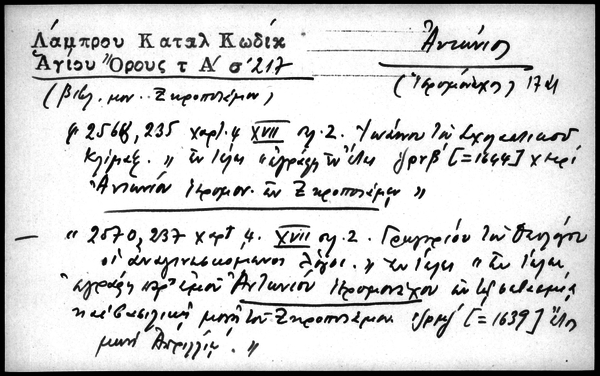 Λάμπρου Καταλ Κωδίκ
Ἁγίου Ὄρους τ Α' σ' 217
Ἀντώνιος
(Ἱερομόναχος) 17 αἰ
(βιβλ. μον. Ξηροποτάμου)
2568, 235 χαρτ. 4 XVII σελ. 2. Ἰωάννου τοῦ Σχολαστικοῦ
Κλίμαξ. " ἐν τέλει "ἐγράφη ἐν ἔτει ͵ζρνβ' [=1644] χειρὶ
Ἀντωνίου ἱερομον. ἐν Ξηροποτάμῳ "
— " 2570, 237 χαρτ 4. XVII σελ. 2. Γρηγορίου τοῦ Θεολόγου
οἱ ἀναγινωσκόμενοι λόγοι. " ἐν τέλει " ἐν τέλει
ἐγράφη παρ' ἐμοῦ Ἀντωνίου ἱερομονάχου ἐν τῇ σεβασμίᾳ
καὶ βασιλικῇ μονῇ τοῦ Ξηροποτάμου ͵ζρμζ' [=1639] ἔτος
μηνὶ Ἀπριλλίῳ. "